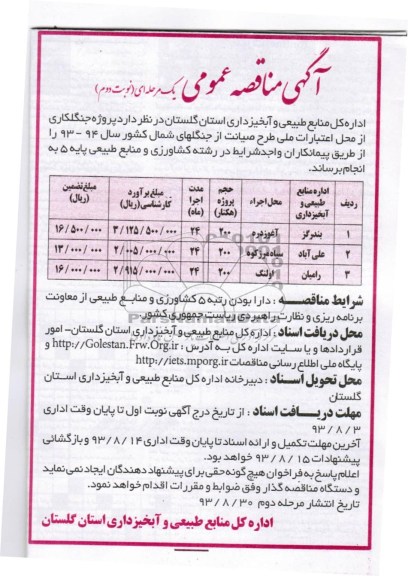 آگهی مناقصه عمومی یک مرحله‌ای (نوبت دوم)
اداره کل منابع طبیعی و آبخیزداری استان گلستان در نظر دارد پروژه جنگلکاری
از محل اعتبارات ملی طرح صیانت از جنگلهای شمال کشور سال ۹۴ - ۹۳ را
از طریق پیمانکاران واجد شرایط در رشته کشاورزی و منابع طبیعی پایه ۵ به
انجام برساند.
ردیف | اداره منابع طبیعی و آبخیزداری | محل اجراء | حجم پروژه (هکتار) | مدت اجرا (ماه) | مبلغ برآورد کارشناسی (ریال) | مبلغ تضمین (ریال)
۱ | بندرگز | آغوزدره | ۲۰۰ | ۲۴ | ۳/۱۲۵/۵۰۰/۰۰۰ | ۱۶/۵۰۰/۰۰۰
۲ | علی آباد | سیاه مرزکوه | ۲۰۰ | ۲۴ | ۲/۰۰۵/۰۰۰/۰۰۰ | ۱۳/۰۰۰/۰۰۰
۳ | رامیان | اولنگ | ۲۰۰ | ۲۴ | ۲/۹۱۵/۰۰۰/۰۰۰ | ۱۶/۰۰۰/۰۰۰
شرایط مناقصه : دارا بودن رتبه ۵ کشاورزی و منابع طبیعی از معاونت
برنامه ریزی و نظارت راهبردی ریاست جمهوری کشور
محل دریافت اسناد : اداره کل منابع طبیعی و آبخیزداری استان گلستان- امور
قراردادها و یا سایت اداره کل به آدرس : http://Golestan.Frw.Org.ir و
پایگاه ملی اطلاع رسانی مناقصات http://iets.mporg.ir
محل تحویل اسناد : دبیرخانه اداره کل منابع طبیعی و آبخیزداری استان
گلستان
مهلت دریافت اسناد : از تاریخ درج آگهی نوبت اول تا پایان وقت اداری
۹۳/۸/۳
آخرین مهلت تکمیل و ارائه اسناد تا پایان وقت اداری ۹۳/۸/۱۴ و بازگشائی
پیشنهادات ۹۳/۸/۱۵ خواهد بود.
اعلام پاسخ به فراخوان هیچ گونه حقی برای پیشنهاد دهندگان ایجاد نمی نماید
و دستگاه مناقصه گذار وفق ضوابط و مقررات اقدام خواهد نمود.
تاریخ انتشار مرحله دوم ۹۳/۸/۳۰
اداره کل منابع طبیعی و آبخیزداری استان گلستان